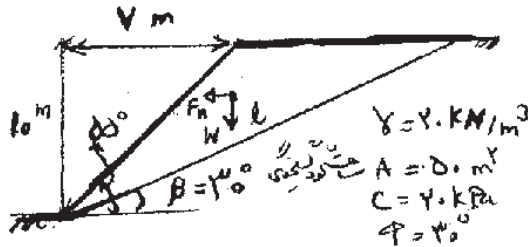 ۷ m
۱۰ m
۵۵°
Fₕ
W
l
β = ۳۰°
γ = ۲۰ kN/m³
A = ۵۰ m²
C = ۲۰ kPa
φ = ۳۰°